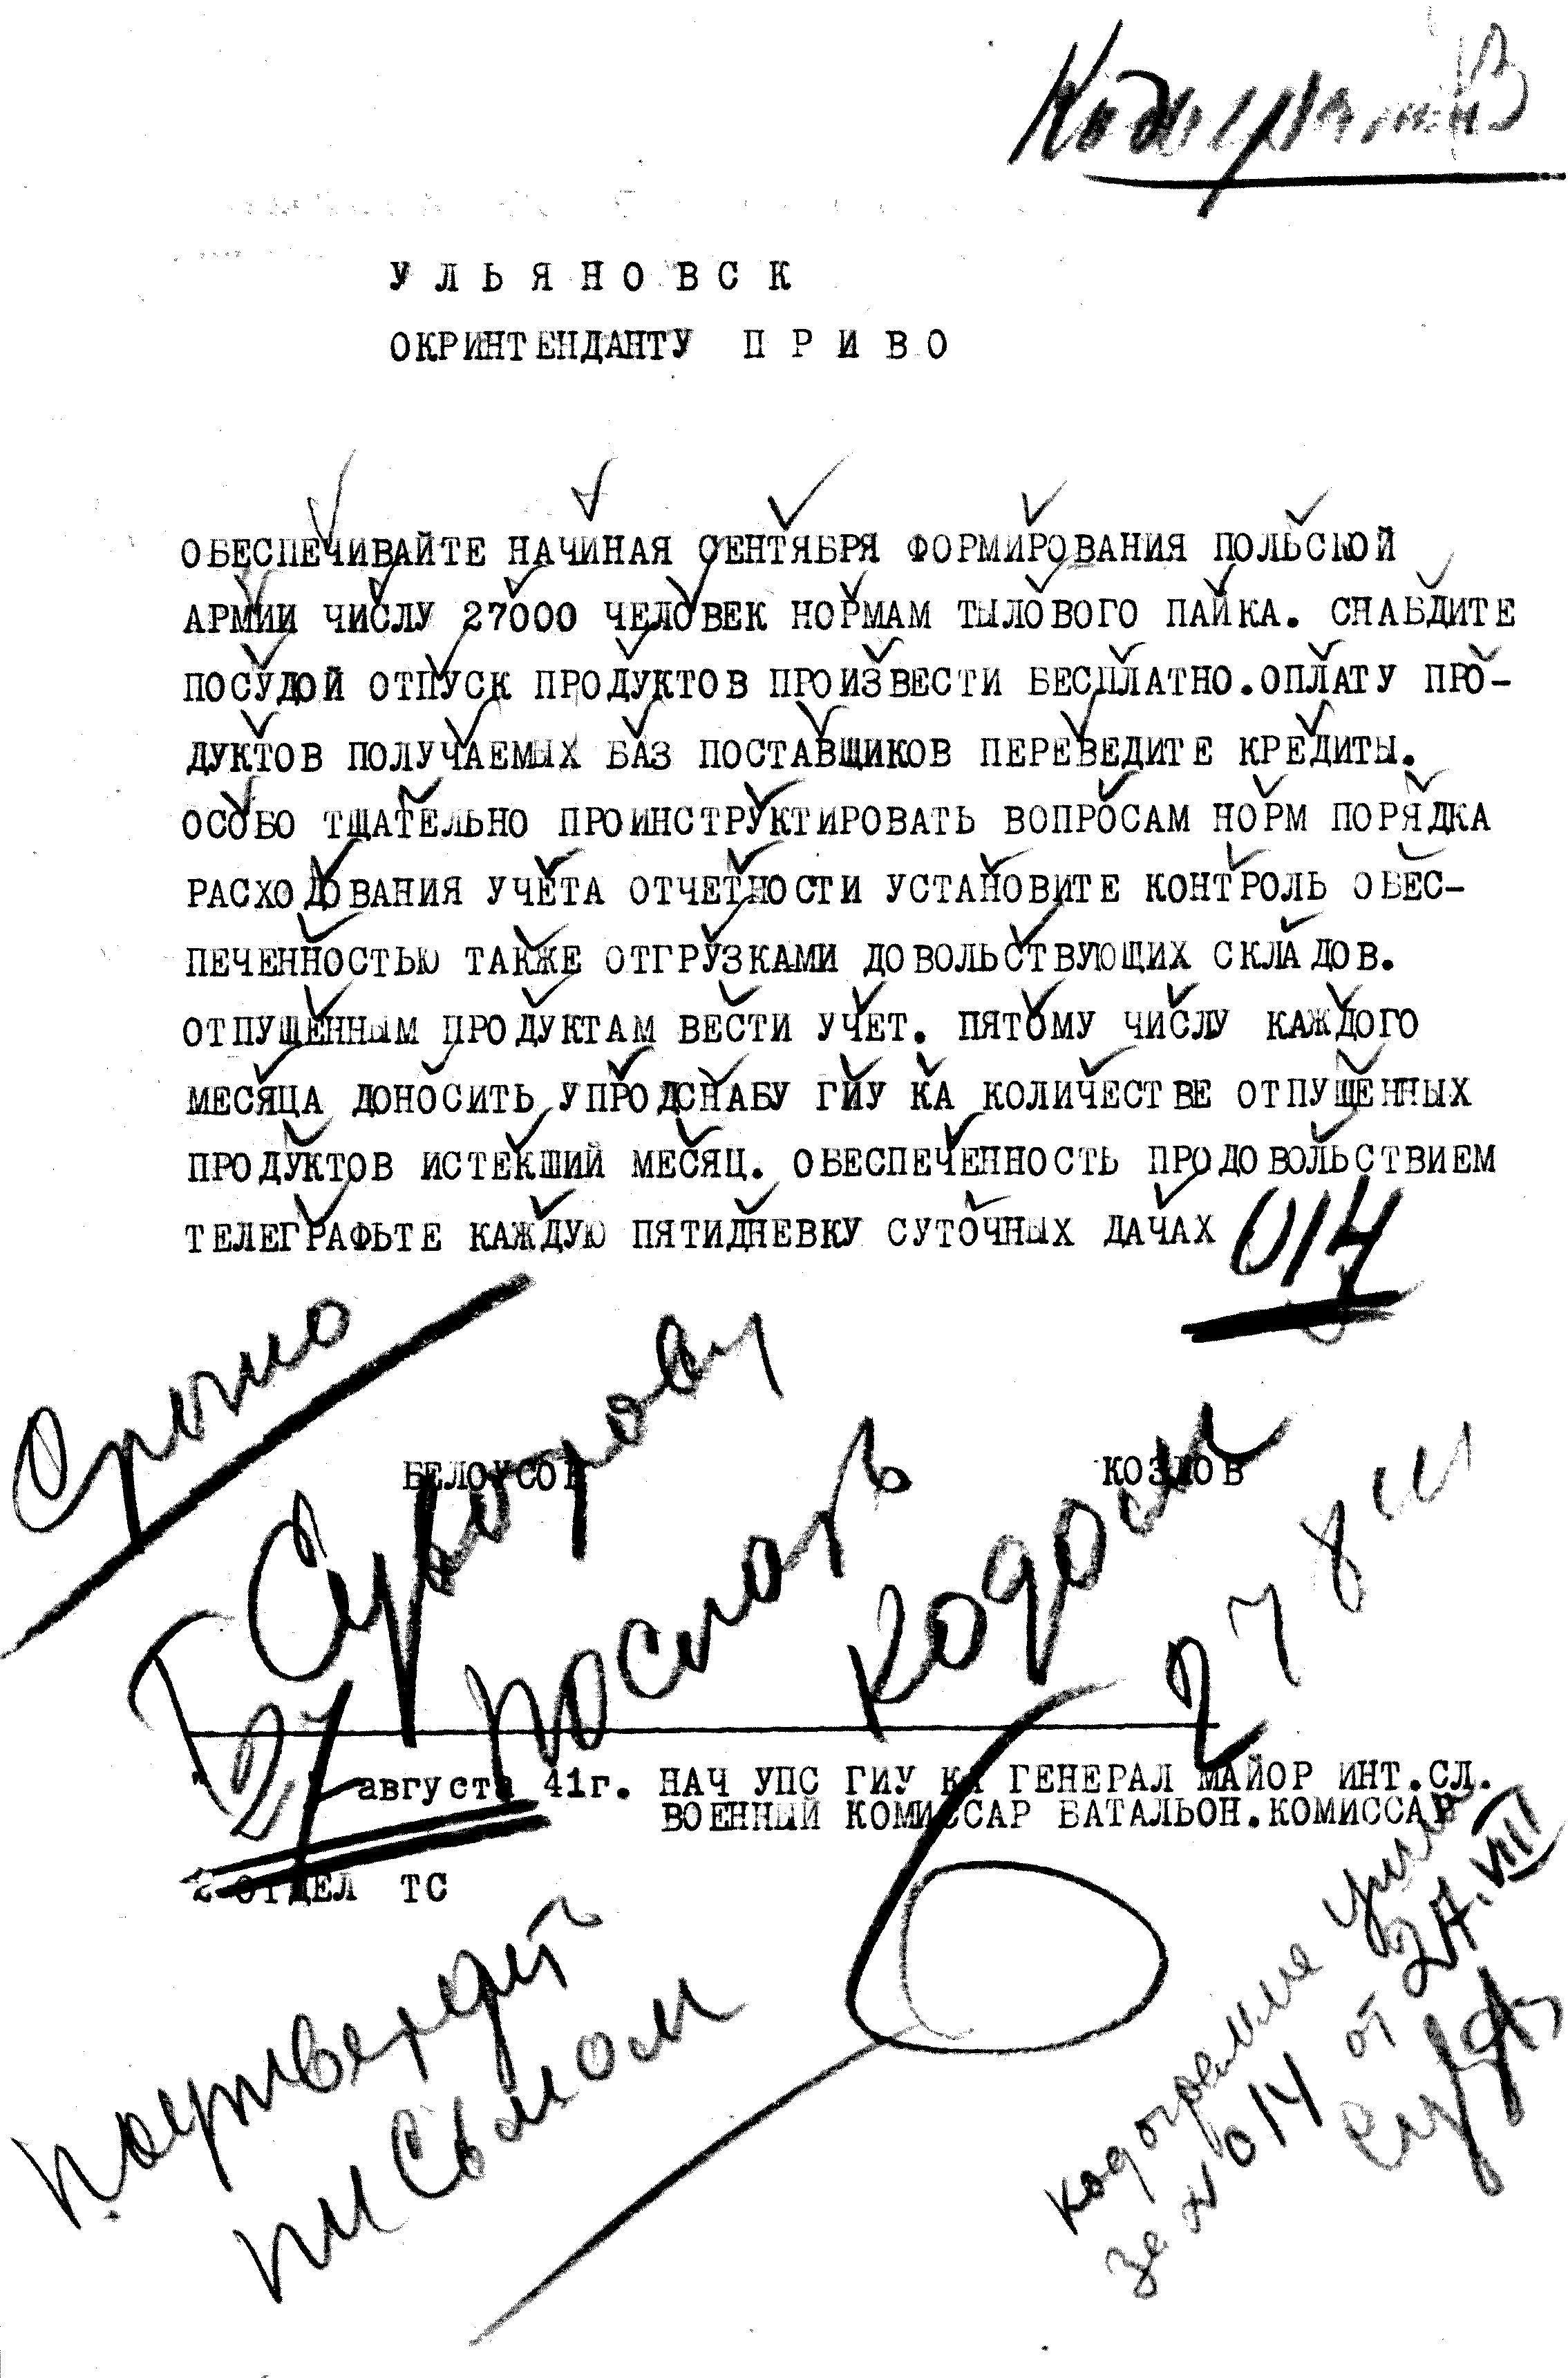 УЛЬЯНОВСК
ОКРИНТЕНДАНТУ ПРИВО
ОБЕСПЕЧИВАЙТЕ НАЧИНАЯ СЕНТЯБРЯ ФОРМИРОВАНИЯ ПОЛЬСКОЙ
АРМИИ ЧИСЛУ 27000 ЧЕЛОВЕК НОРМАМ ТЫЛОВОГО ПАЙКА. СНАБДИТЕ
ПОСУДОЙ ОТПУСК ПРОДУКТОВ ПРОИЗВЕСТИ БЕСПЛАТНО.ОПЛАТУ ПРО-
ДУКТОВ ПОЛУЧАЕМЫХ БАЗ ПОСТАВЩИКОВ ПЕРЕВЕДИТЕ КРЕДИТЫ.
ОСОБО ТЩАТЕЛЬНО ПРОИНСТРУКТИРОВАТЬ ВОПРОСАМ НОРМ ПОРЯДКА
РАСХОДОВАНИЯ УЧЕТА ОТЧЕТНОСТИ УСТАНОВИТЕ КОНТРОЛЬ ОБЕС-
ПЕЧЕННОСТЬЮ ТАКЖЕ ОТГРУЗКАМИ ДОВОЛЬСТВУЮЩИХ СКЛАДОВ.
ОТПУЩЕННЫМ ПРОДУКТАМ ВЕСТИ УЧЕТ. ПЯТОМУ ЧИСЛУ КАЖДОГО
МЕСЯЦА ДОНОСИТЬ УПРОДСНАБУ ГИУ КА КОЛИЧЕСТВЕ ОТПУЩЕННЫХ
ПРОДУКТОВ ИСТЕКШИЙ МЕСЯЦ. ОБЕСПЕЧЕННОСТЬ ПРОДОВОЛЬСТВИЕМ
ТЕЛЕГРАФЬТЕ КАЖДУЮ ПЯТИДНЕВКУ СУТОЧНЫХ ДАЧАХ 014
Срочно
БЕЛОУСОВ КОЗЛОВ
Т Суворову
послать кодом
27 8
"27" августа 41г. НАЧ УПС ГИУ КА ГЕНЕРАЛ МАЙОР ИНТ.СЛ.
ВОЕННЫЙ КОМИССАР БАТАЛЬОН.КОМИССАР
2 ОТДЕЛ ТС
Подтвердить
письмом
за № 014 от 27.VIII